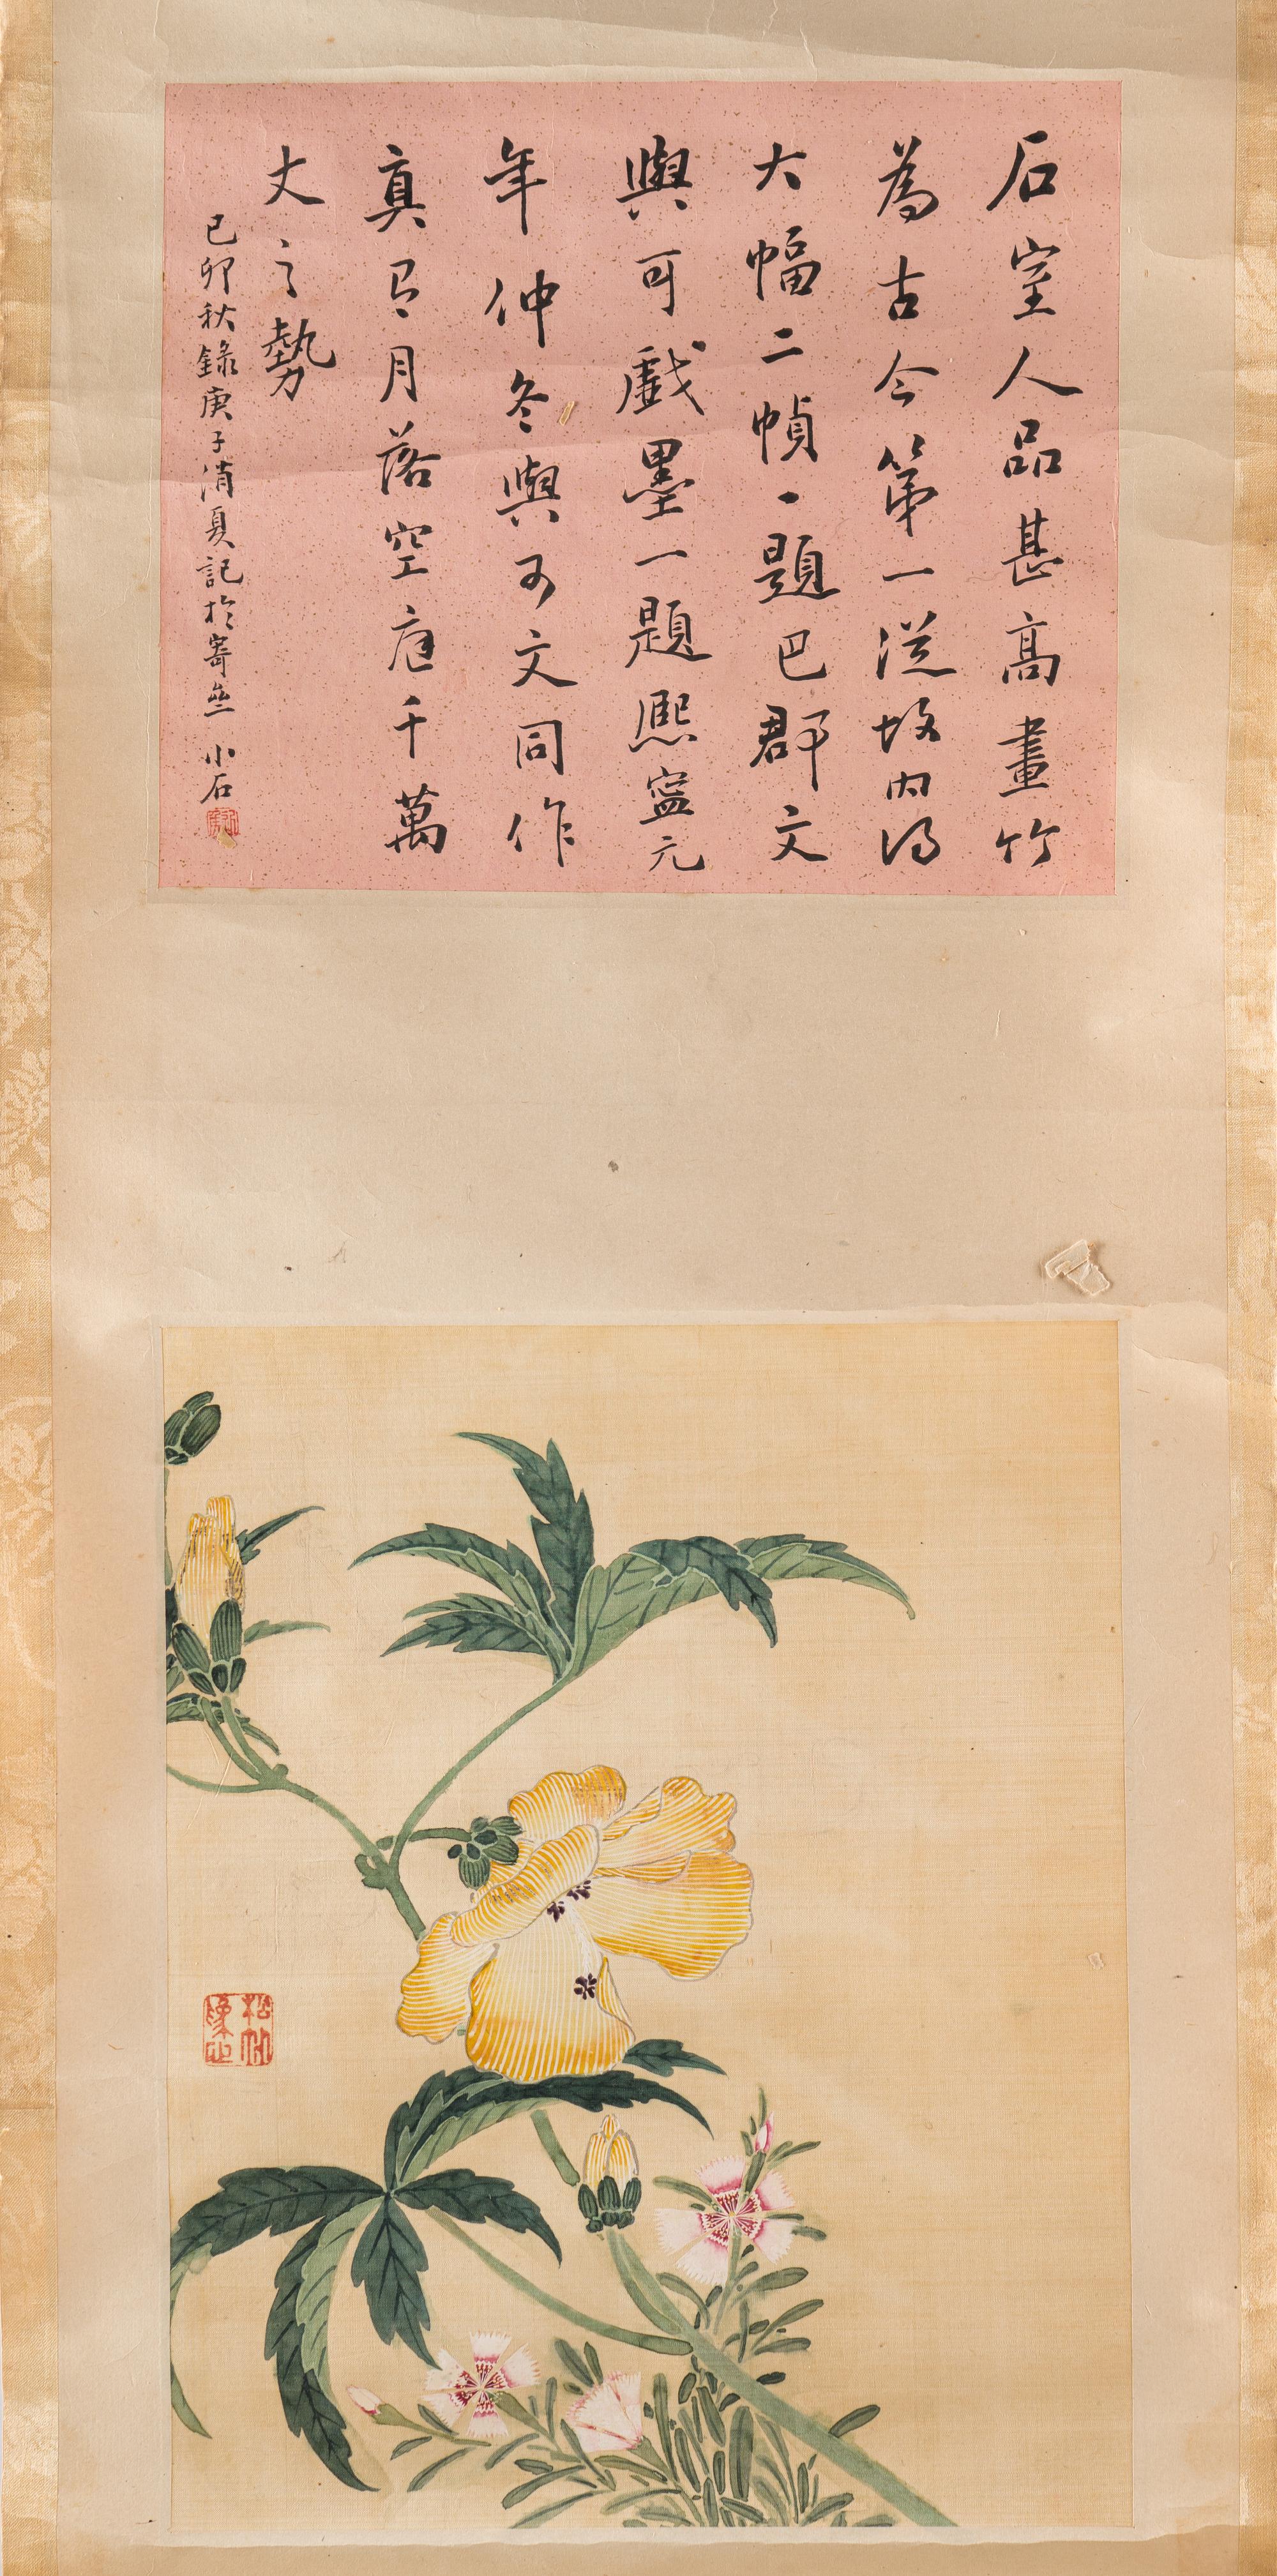 石室人品甚高畫竹
為古今第一從坡內得
大幅二幀一題巴郡文
與可戲墨一題熙寧元
年仲冬與可文同作
真有月落空庭千萬
丈之勢
己卯秋錄庚子消夏記於寄 小石